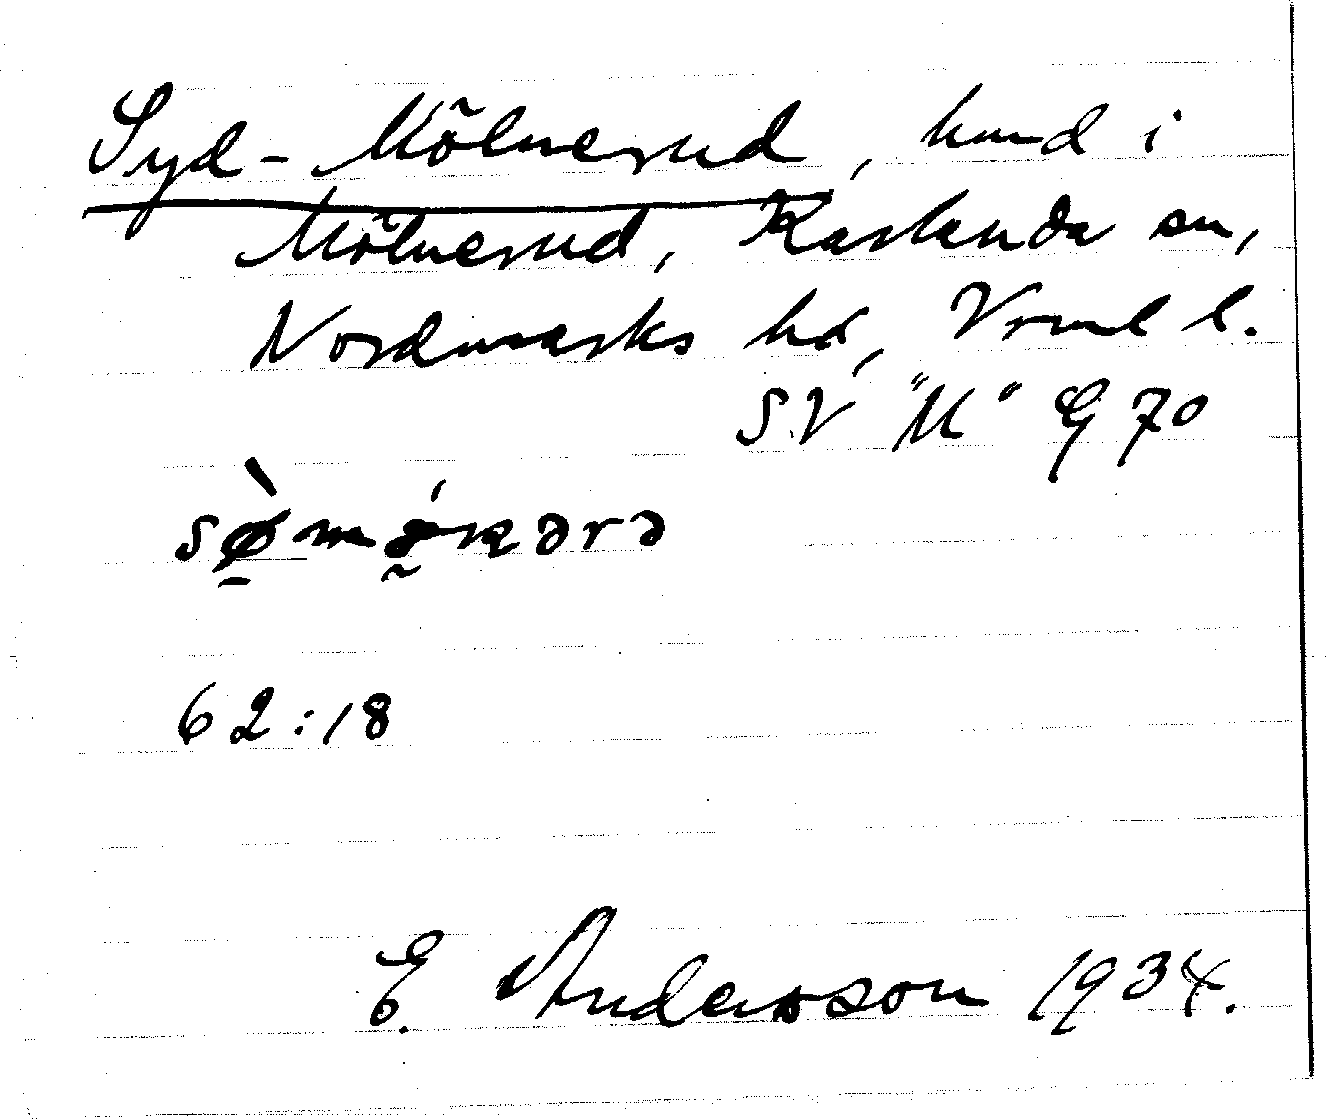 Syd-Mölnerud, hmd i
Mölnerud, Karlanda sn,
Nordmarks hd, Vrml l.
SV "M" G 70
62:18
E. Andersson 1934.